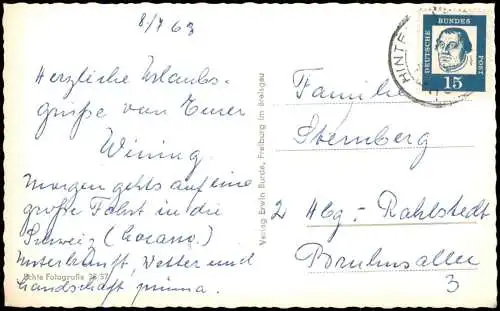 8/7 63
Herzliche Urlaubs-
grüße von Eurer
Morgen gehts auf eine
große Fahrt in die
Schweiz (Locarno)
Unterkunft, Wetter und
Landschaft prima.
Echte Fotografie 28 57
Verlag Erwin Burda, Freiburg im Breisgau
HINTE
DEUTSCHE BUNDES POST
15
Familie
Sternberg
2 Hbg.-Rahlstedt
3